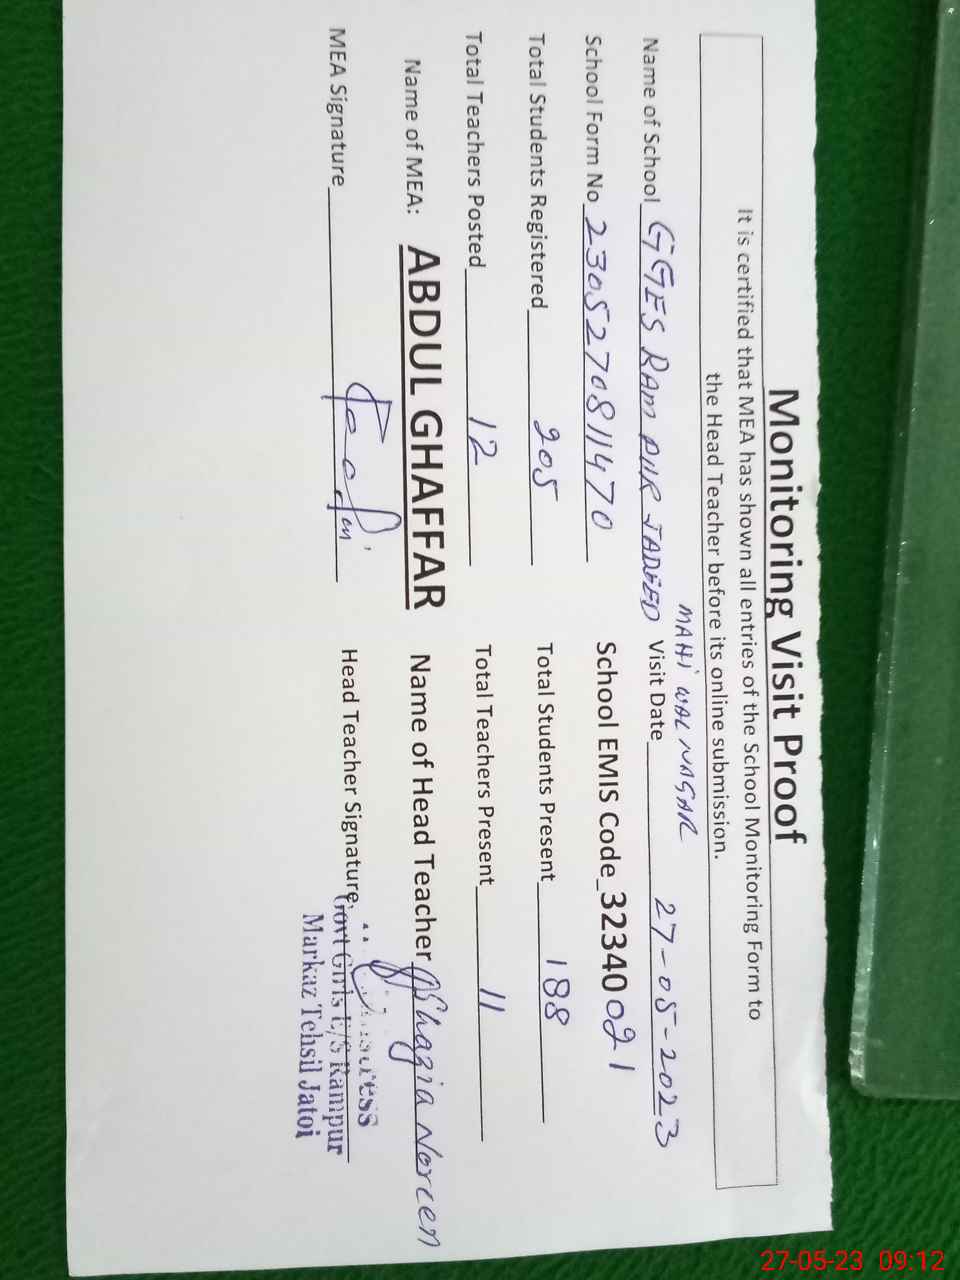 Monitoring Visit Proof
It is certified that MEA has shown all entries of the School Monitoring Form to
the Head Teacher before its online submission.
MAHI WAL NAGAR
Name of School GGES RAM PUR JADEED Visit Date 27-05-2023
School Form No 2305270811470 School EMIS Code 32340021
Total Students Registered 205 Total Students Present 188
Total Teachers Posted 12 Total Teachers Present 11
Name of MEA: ABDUL GHAFFAR Name of Head Teacher Shazia Noreen
MEA Signature Head Teacher Signature
Govt Girls E/S Rampur
Markaz Tehsil Jatoi
27-05-23 09:12